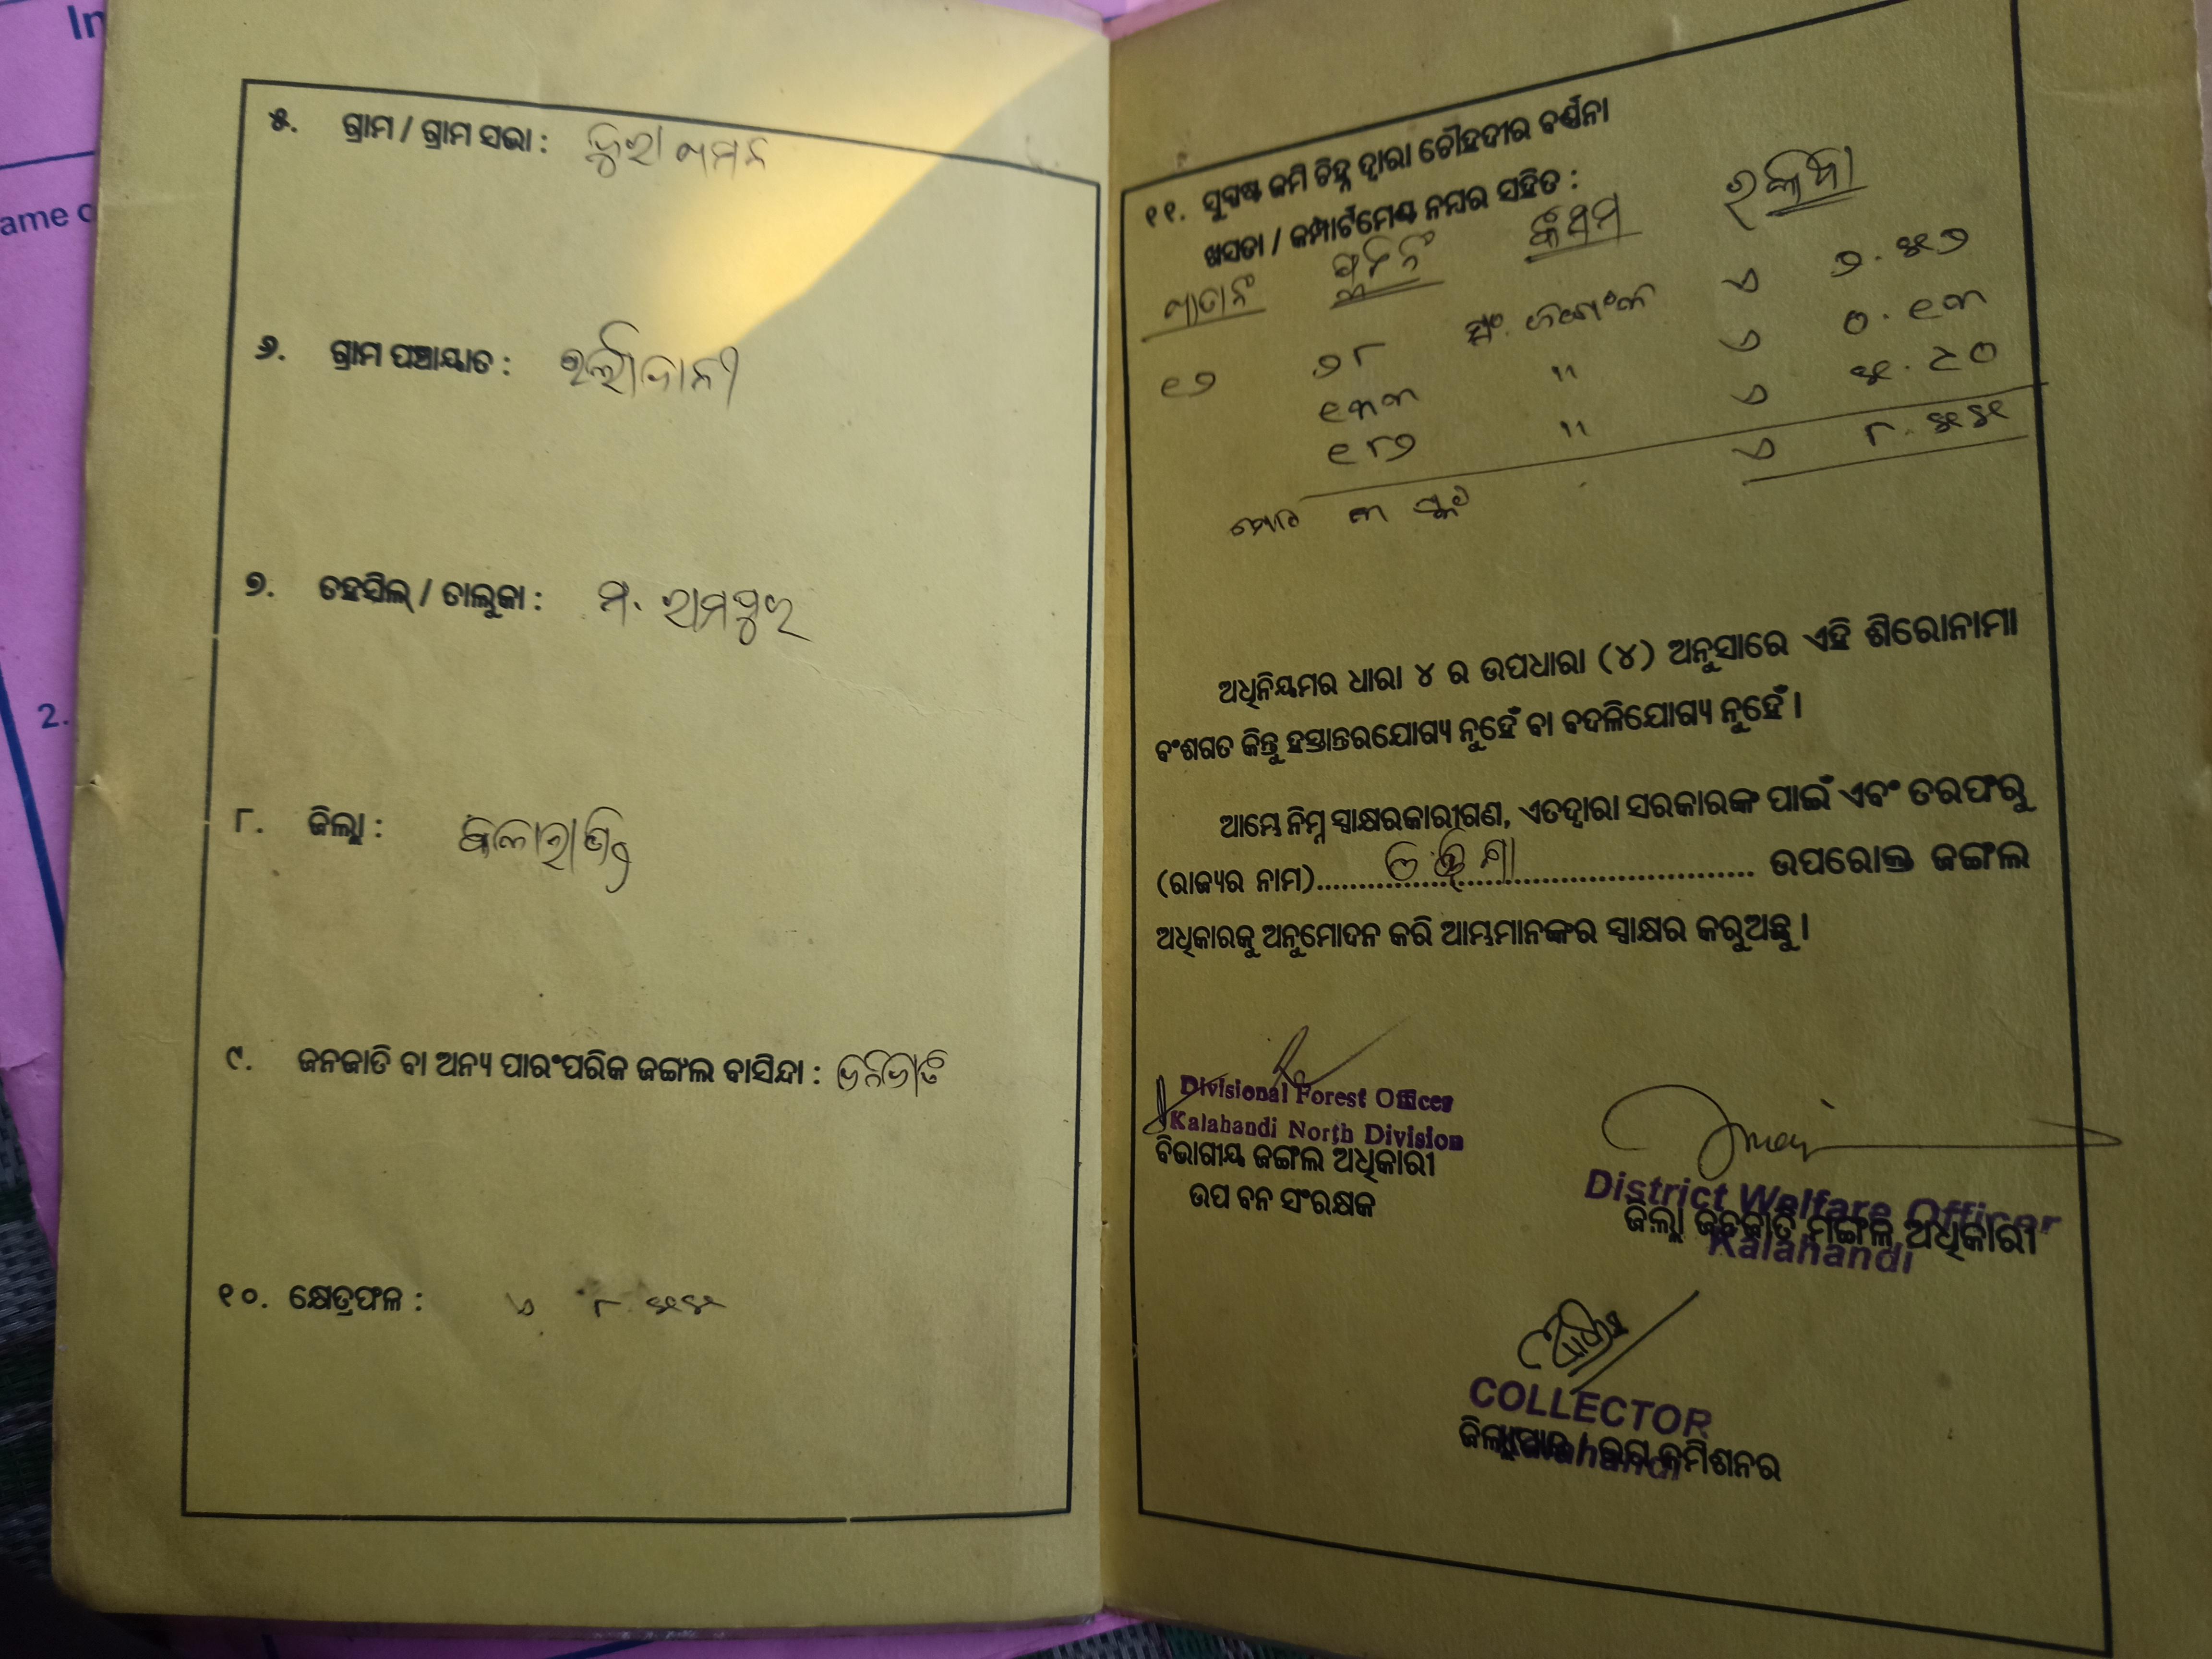 ୫. ଗ୍ରାମ / ଗ୍ରାମ ସଭା :
୬. ଗ୍ରାମ ପଞ୍ଚାୟାତ :
୭. ତହସିଲ୍ / ତାଲୁକା : ମ. ରାମପୁର
୮. ଜିଲ୍ଲା : କଳାହାଣ୍ଡି
୯. ଜନଜାତି ବା ଅନ୍ୟ ପାରଂପରିକ ଜଙ୍ଗଲ ବାସିନ୍ଦା : ଜନଜାତି
୧୦. କ୍ଷେତ୍ରଫଳ : ଏ ୮.୫୫
୧୧. ସୁସ୍ପଷ୍ଟ ଜମି ଚିହ୍ନ ଦ୍ୱାରା ଚୌହଦୀର ବର୍ଣ୍ଣନା
ଖସଡା / କମ୍ପାର୍ଟମେଣ୍ଟ ନମ୍ବର ସହିତ :
ଖାତା ନଂ ପ୍ଲଟ ନଂ କିସମ ରକବା
୧୭ ୭୮ ଏ ୭.୫୭
୧୩୩ " ଏ ୦.୧୩
୧୮୭ " ଏ
ମୋଟ ୩ ପ୍ଲଟ ଏ ୮.୫୫
ଅଧିନିୟମର ଧାରା ୪ ର ଉପଧାରା (୪) ଅନୁସାରେ ଏହି ଶିରୋନାମା
ବଂଶଗତ କିନ୍ତୁ ହସ୍ତାନ୍ତରଯୋଗ୍ୟ ନୁହେଁ ବା ବଦଳିଯୋଗ୍ୟ ନୁହେଁ ।
ଆମ୍ଭେ ନିମ୍ନ ସ୍ୱାକ୍ଷରକାରୀଗଣ, ଏତଦ୍ୱାରା ସରକାରଙ୍କ ପାଇଁ ଏବଂ ତରଫରୁ
(ରାଜ୍ୟର ନାମ)..........ଓଡ଼ିଶା.......... ଉପରୋକ୍ତ ଜଙ୍ଗଲ
ଅଧିକାରକୁ ଅନୁମୋଦନ କରି ଆମ୍ଭମାନଙ୍କର ସ୍ୱାକ୍ଷର କରୁଅଛୁ ।
Divisional Forest Officer
Kalahandi North Division
ବିଭାଗୀୟ ଜଙ୍ଗଲ ଅଧିକାରୀ
ଉପ ବନ ସଂରକ୍ଷକ
District Welfare Officer
ଜିଲ୍ଲା ଜନଜାତି ମଙ୍ଗଳ ଅଧିକାରୀ
Kalahandi
COLLECTOR
ଜିଲ୍ଲାପାଳ / ଉପ କମିଶନର
Kalahandi
In
ame o
2.